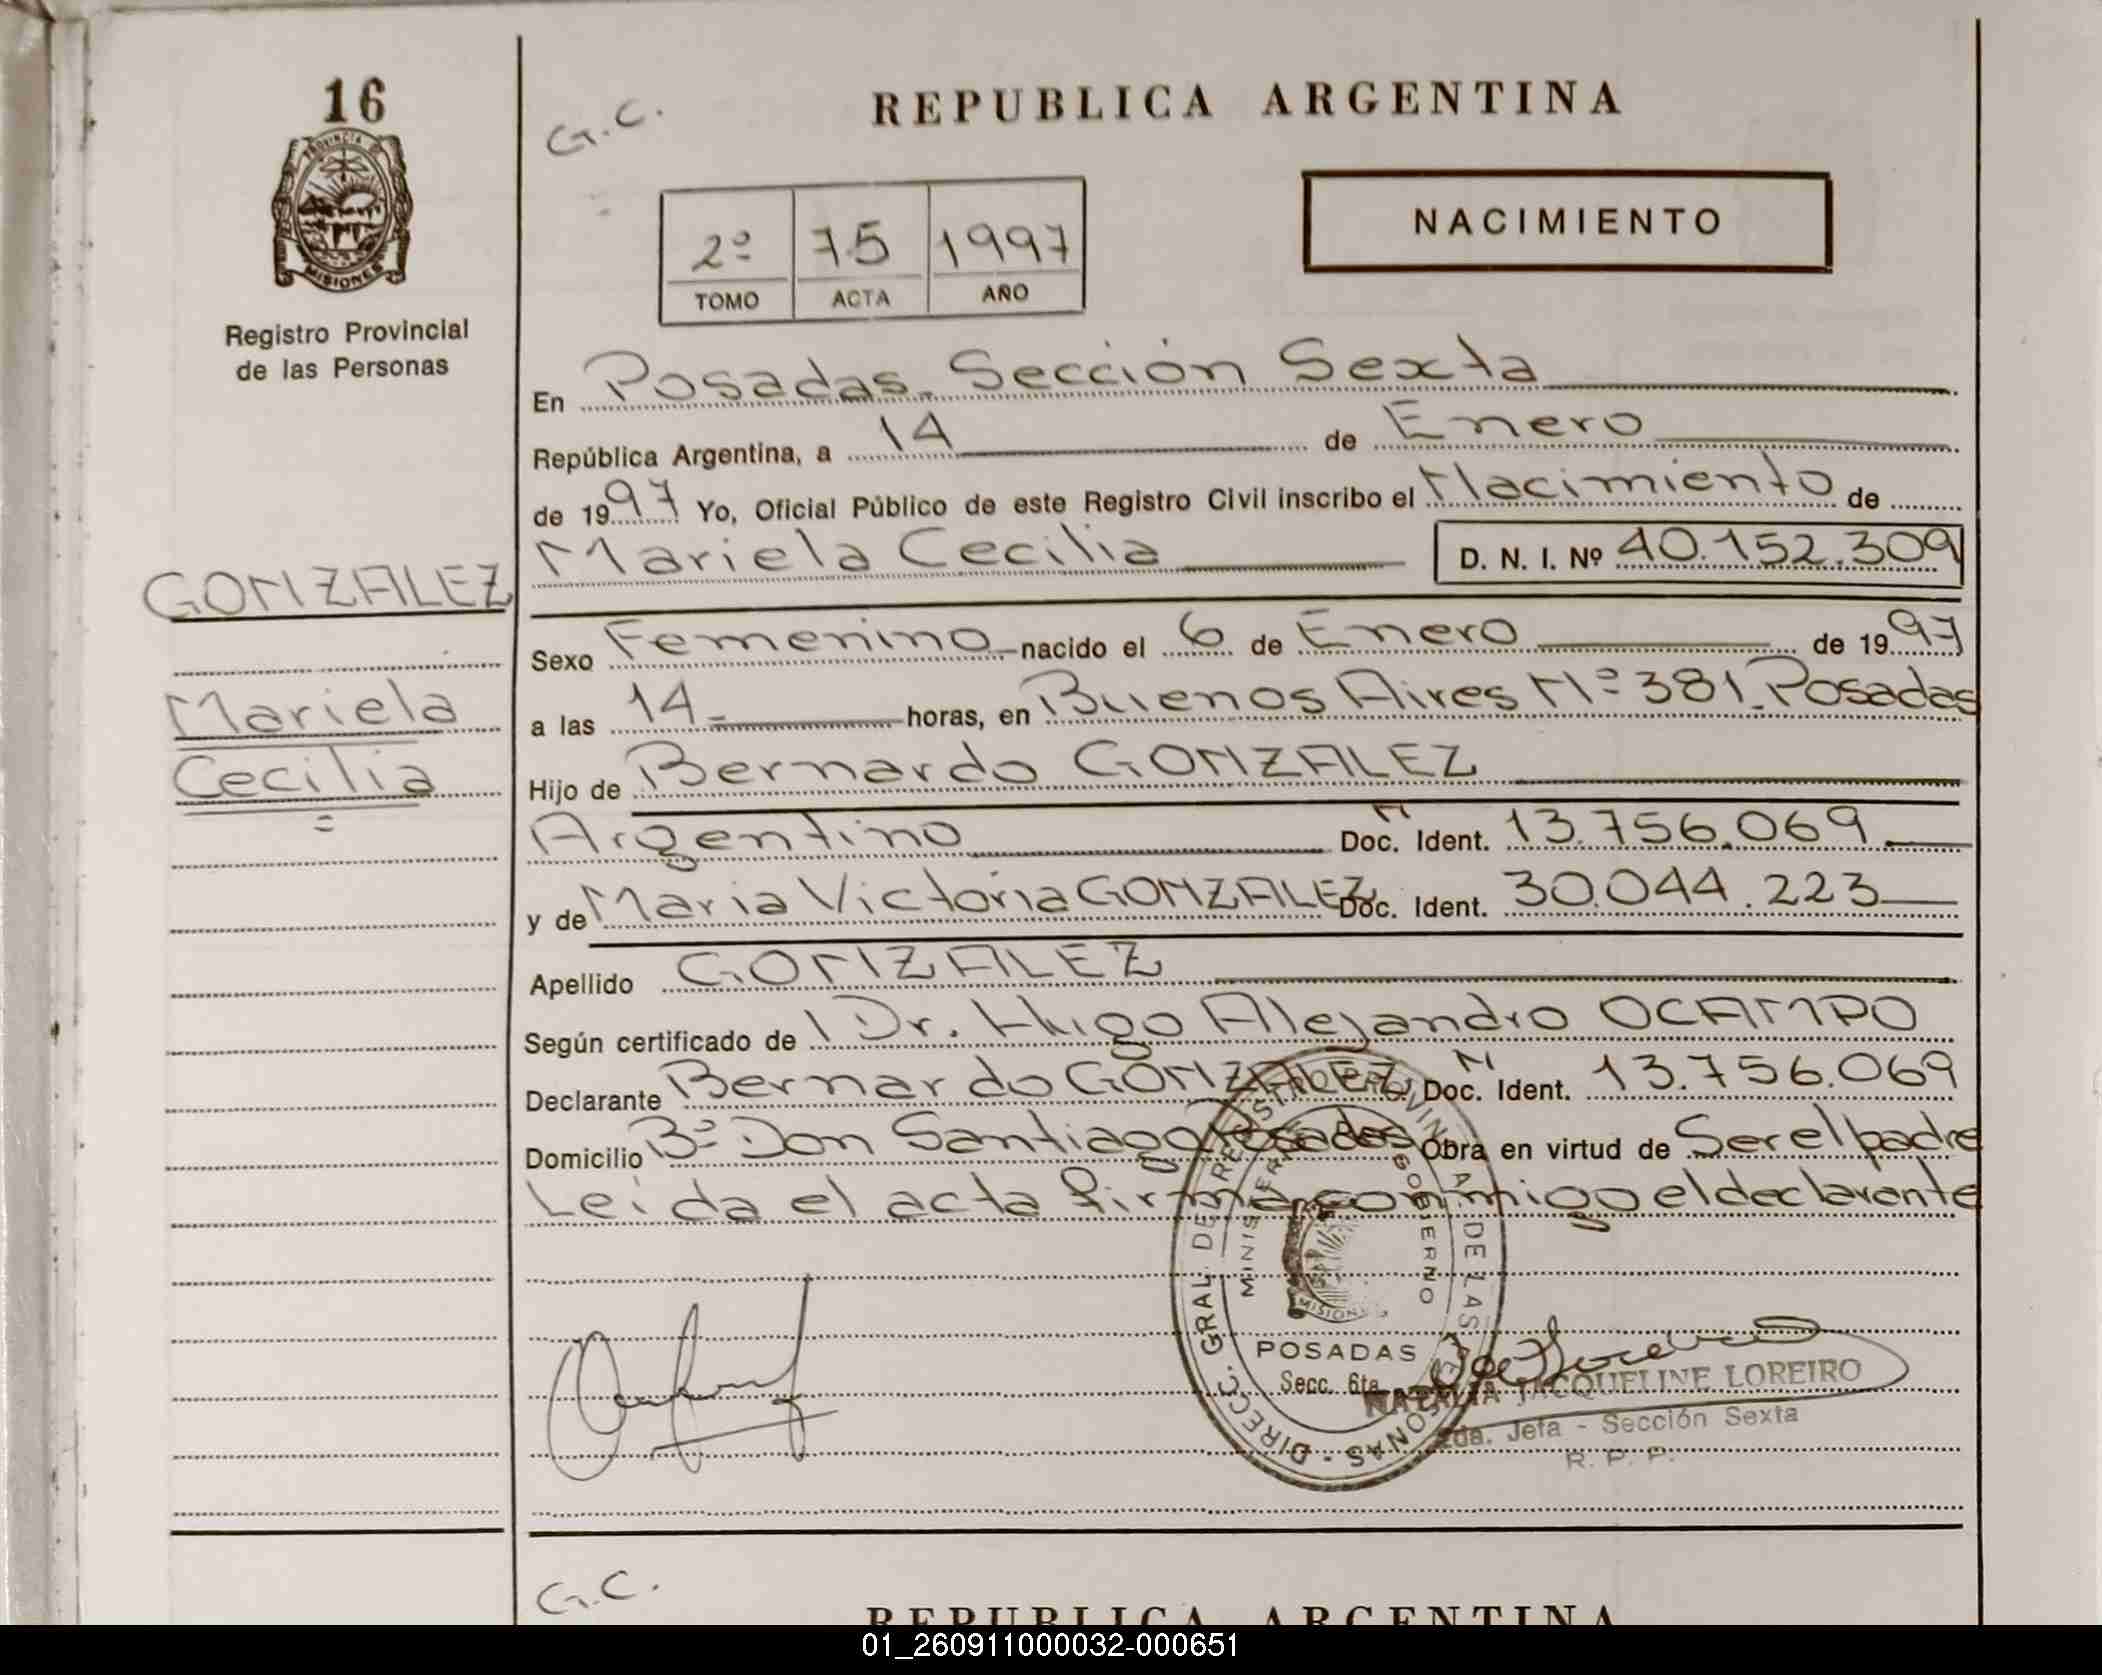 16
PROVINCIA DE
MISIONES
Registro Provincial
de las Personas
G.C.
REPUBLICA ARGENTINA
NACIMIENTO
2º 75 1997
TOMO ACTA AÑO
En Posadas. Sección Sexta
República Argentina, a 14 de Enero
de 1997 Yo, Oficial Público de este Registro Civil inscribo el Nacimiento de
Mariela Cecilia D. N. I. Nº 40.152.309
GONZALEZ
Mariela
Cecilia
Sexo Femenino nacido el 6 de Enero de 1997
a las 14 horas, en Buenos Aires Nº 381. Posadas
Hijo de Bernardo GONZALEZ
Argentino Doc. Ident. 13.756.069
y de Maria Victoria GONZALEZ Doc. Ident. 30.044.223
Apellido GONZALEZ
Según certificado de Dr. Hugo Alejandro OCAMPO
Declarante Bernardo GONZALEZ Doc. Ident. 13.756.069
Domicilio Bº Don Santiago Posadas Obra en virtud de Ser el padre
Leida el acta firma conmigo el declarante
DIRECC. GRAL DE REGISTRO PROVINCIAL DE LAS PERSONAS
MINISTERIO DE GOBIERNO
MISIONES
POSADAS
Secc. 6ta
NATALIA JACQUELINE LOREIRO
2da. Jefa - Sección Sexta
R. P. P.
G.C.
REPUBLICA ARGENTINA
01_260911000032-000651